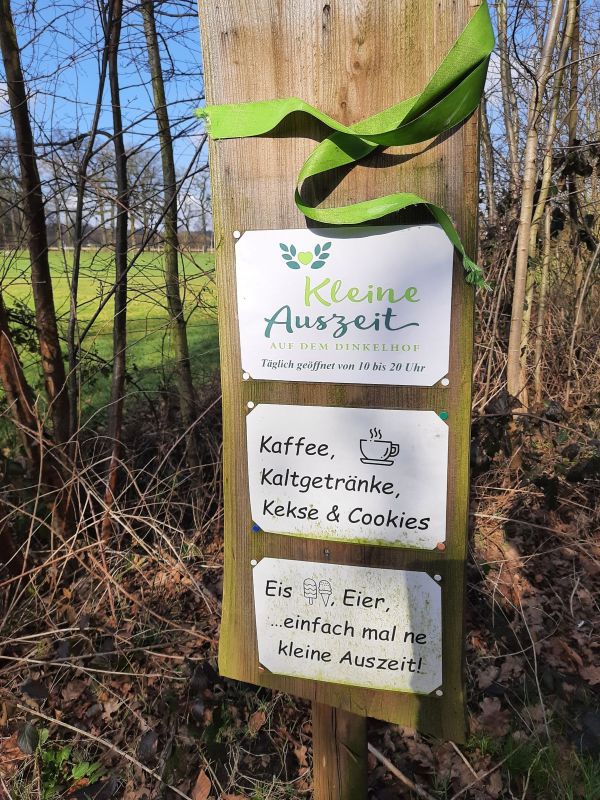 Kleine
Auszeit
AUF DEM DINKELHOF
Täglich geöffnet von 10 bis 20 Uhr
Kaffee,
Kaltgetränke,
Kekse & Cookies
Eis , Eier,
...einfach mal ne
kleine Auszeit!